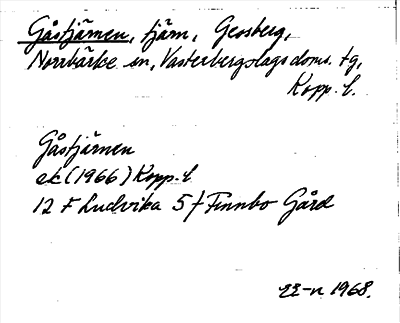 Gåstjärnen, tjärn, Gessberg,
Norrbärke sn, Västerbergslags doms. tg,
Kopp. l.
Gåstjärnen
ek (1966) Kopp. l.
12 F Ludvika 5 f Finnbo Gård
1968.